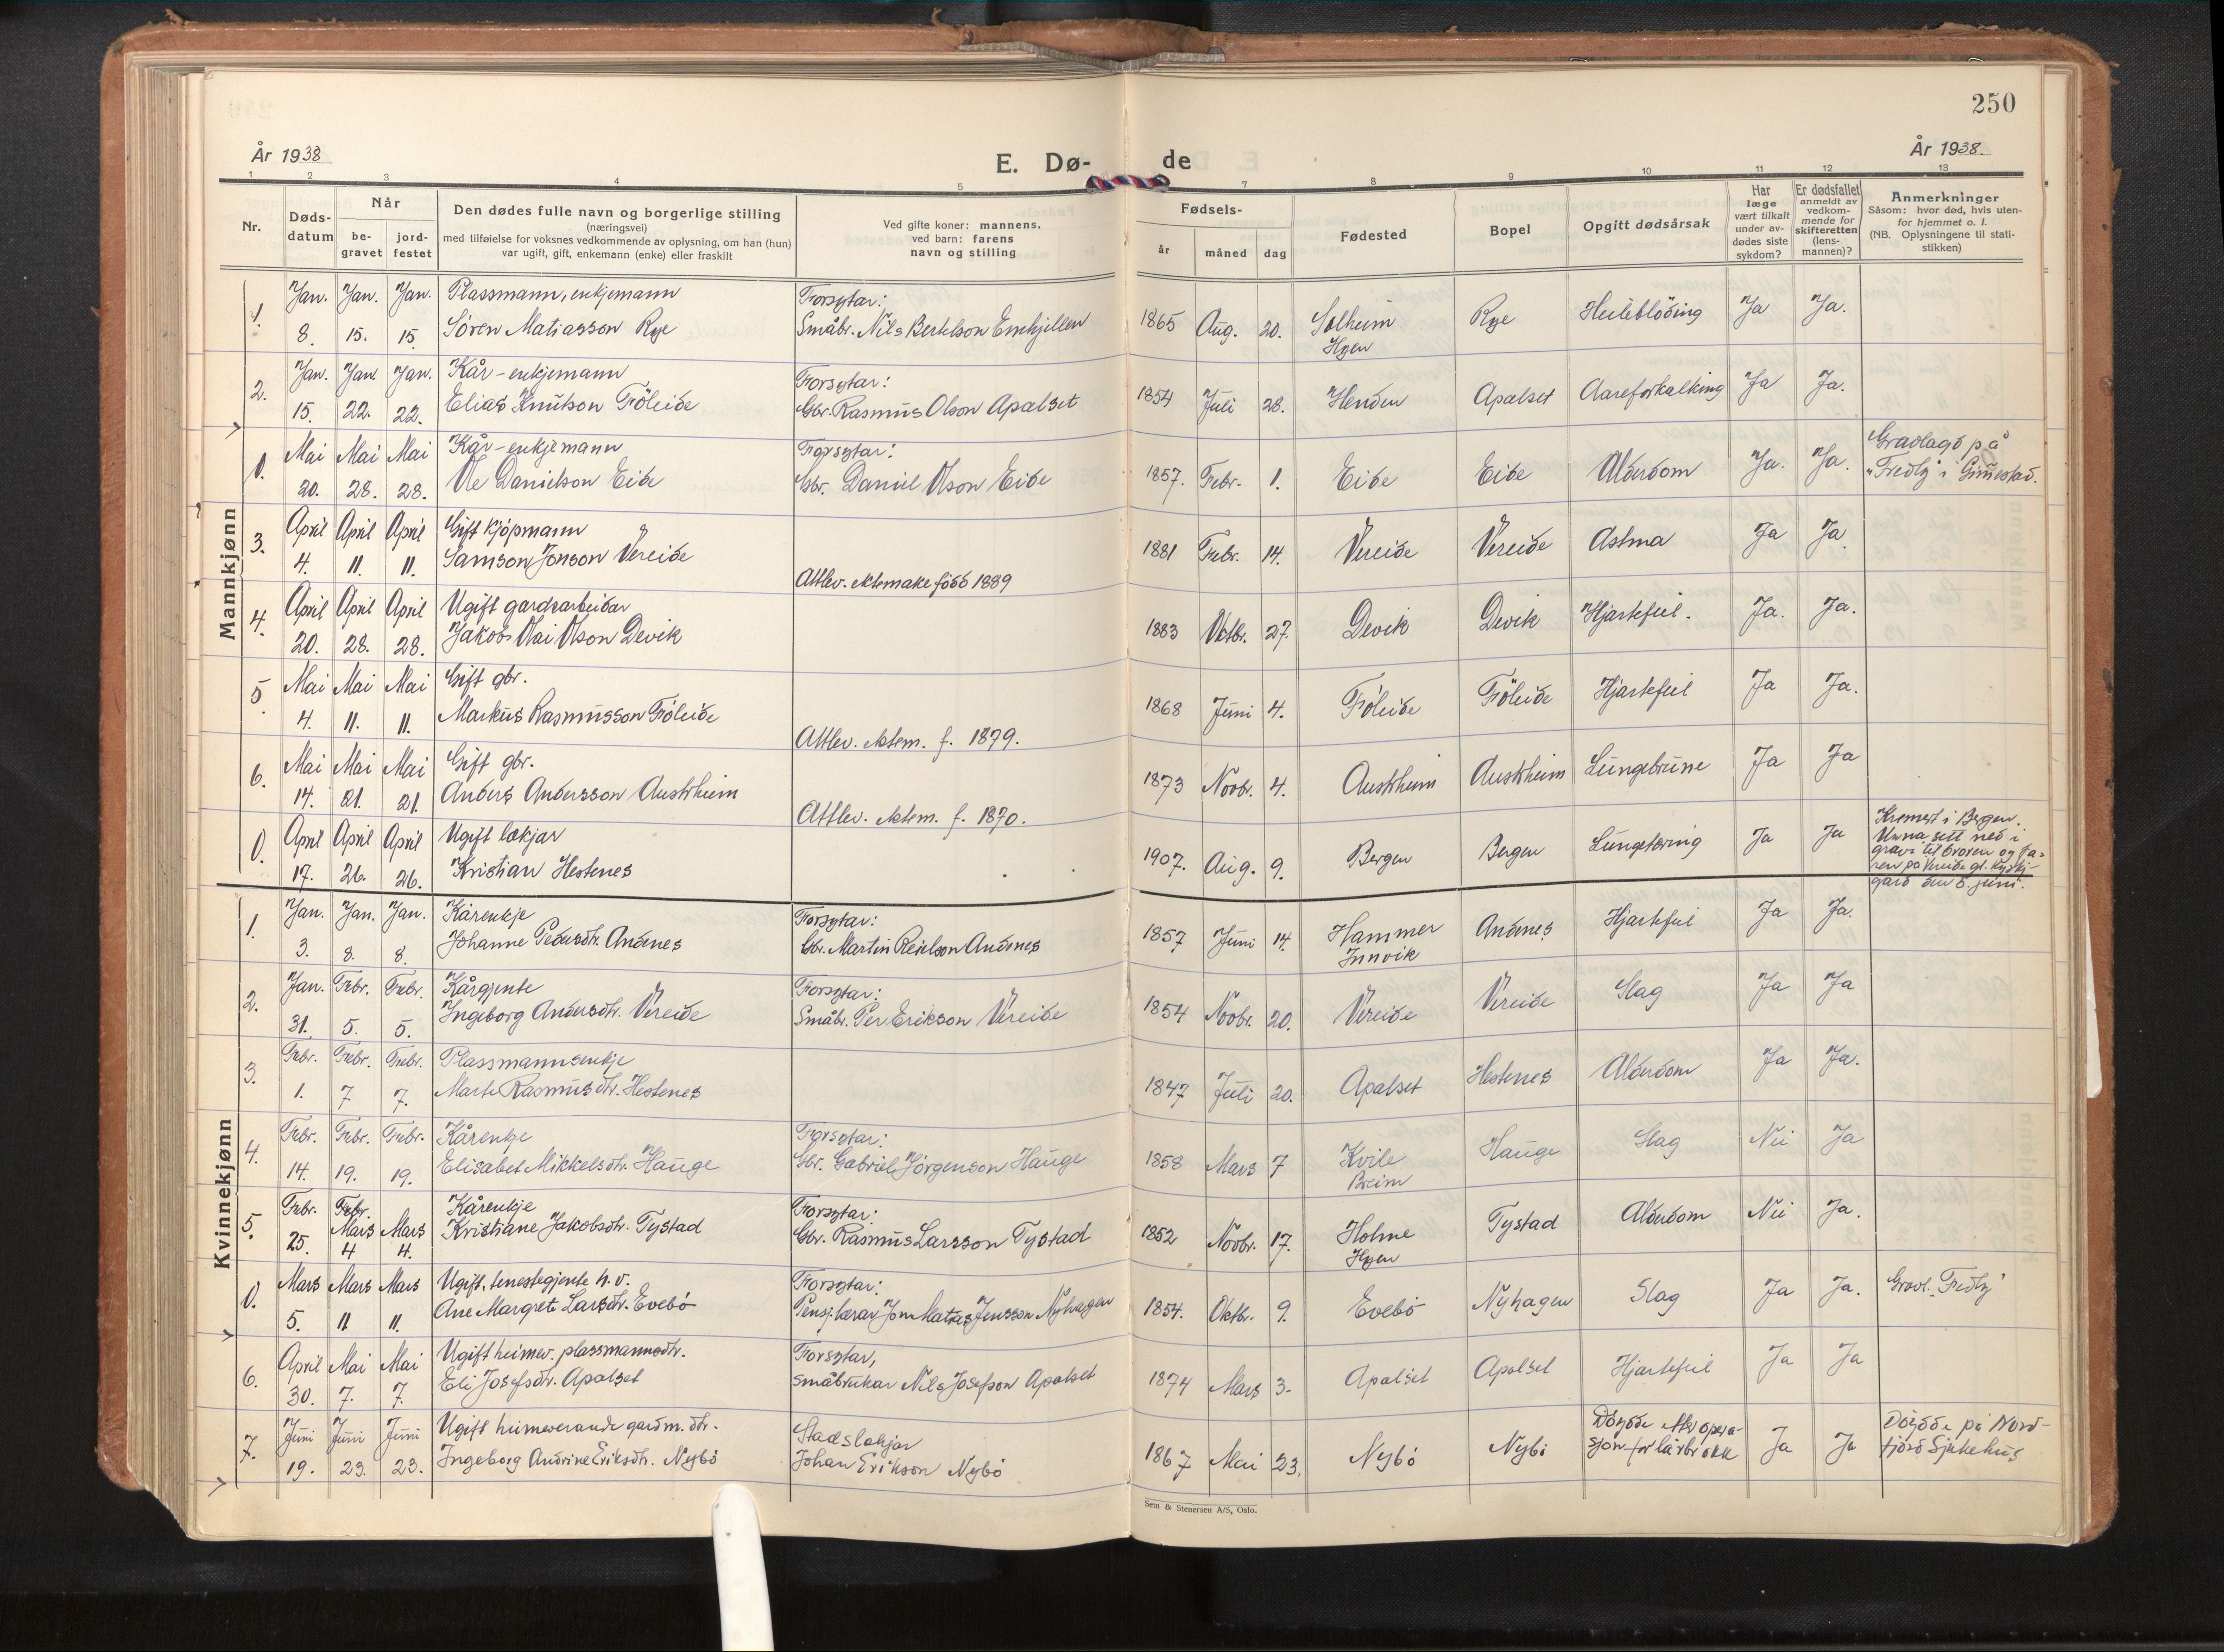 250
År 1938
E. Dø-
de
År 1938.
1 2 3 4 5 7 8 9 10 11 12 13
Nr.
Døds-
datum
Når
be-
gravet
jord-
festet
Den dødes fulle navn og borgerlige stilling
(næringsvei)
med tilføielse for voksnes vedkommende av oplysning, om han (hun)
var ugift, gift, enkemann (enke) eller fraskilt
Ved gifte koner: mannens,
ved barn: farens
navn og stilling
Fødsels-
år måned dag
Fødested
Bopel
Opgitt dødsårsak
Har
læge
vært tilkalt
under av-
dødes siste
sykdom?
Er dødsfallet
anmeldt av
vedkom-
mende for
skifteretten
(lens-
mannen)?
Anmerkninger
Såsom: hvor død, hvis uten-
for hjemmet o. l.
(NB. Oplysningene til stati-
stikken)
Mannkjønn
1. Jan. Jan. Jan. Plassmann, enkjemann Forsytar:
8. 15. 15. Søren Matiasson Rye Småbr. Nils Bertelson 1865 Aug. 20. Solheim Rye Heilebløding Ja Ja.
Hyen
2. Jan. Jan. Jan. Kår-enkjemann Forsytar:
15. 22. 22. Elias Knutson Fröleide Gbr. Rasmus Olson Apalset 1854 Juli 28. Henden Apalset Aareforkalking Ja Ja.
0. Mai Mai Mai Kår-enkjemann Forsytar: Gravlagd på
20. 28. 28. Ole Danielson Eide Gbr. Daniel Olson Eide 1857. Febr. 1. Eide Eide Alderdom Ja. Ja. "Fredly" i Gimestad.
3. April April April Gift kjøpmann
4. 11. 11. Samson Jonson Vereide 1881 Febr. 14. Vereide Vereide Astma Ja Ja.
Attlev. ektemake född 1889
4. April April April Ugift gardsarbeidar
20. 28. 28. Jakob Olson Devik 1883 Oktbr. 27. Devik Devik Hjartefeil. Ja. Ja.
5. Mai Mai Mai Gift gbr.
4. 11. 11. Markus Rasmusson Fröleide 1868 Juni 4. Fröleide Fröleide Hjartefeil Ja Ja.
Attlev. ektem. f. 1879.
6. Mai Mai Mai Gift gbr.
14. 21. 21. Anders Andersson Austrheim 1873 Novbr. 4. Austrheim Austrheim Lungebrune Ja Ja
Attlev. ektem. f. 1870.
0. April April April Ugift lækjar
17. 26. 26. Kristian Hestenes 1907. Aug. 9. Bergen Bergen Lungetæring Ja Ja
Kremert i Bergen.
Urna sett ned i
grava til broren og fa-
ren på Vereide gl. kyrkj-
gard den 8. juni.
Kvinnekjønn
1. Jan. Jan. Jan. Kårenkje Forsytar:
3. 8. 8. Johanne Pedersdtr. Andenes Gbr. Martin Andenes 1857 Juni 14. Hammer Andenes Hjartefeil Ja Ja.
Innvik
2. Jan. Febr. Febr. Kårgjente Forsytar:
31. 5. 5. Ingeborg Andersdtr. Vereide Småbr. Per Erikson Vereide 1854 Novbr. 20. Vereide Vereide Slag Ja Ja
3. Febr. Febr. Febr. Plassmannsenkje
1. 7 7. Marte Rasmusdtr. Hestenes 1847 Juli 20. Apalset Hestenes Alderdom Ja Ja.
4. Febr. Febr. Febr. Kårenkje Forsytar:
14. 19. 19. Elisabet Mikkelsdtr. Hauge Gbr. Gabriel Jörgenson Hauge 1858 Mars 7 Kvile Hauge Slag Nei Ja
Breim
5. Febr. Febr. Kårenkje Forsytar:
Mars Mars
25. 4 4. Kristiane Jakobsdtr. Tystad Gbr. Rasmus Larsson Tystad 1852 Novbr. 17. Holme Tystad Alderdom Nei Ja.
Hyen
0. Mars Mars Mars Ugift, tenestegjente h. v. Forsytar:
5. 11 11. Ane Margrete Larsdtr. Evebö Pensj. lærar Jon Matias Jensson Nyhagen 1854. Oktbr. 9. Evebö Nyhagen Slag Ja Ja. Gravl. "Fredly"
6. April Mai Mai Ugift heimev. plassmannsdtr. Forsytar,
30. 7. 7. Eli Josefsdtr. Apalset småbrukar Nils Josefson Apalset 1874 Mars 3. Apalset Apalset Hjartefeil Ja Ja
7. Juni Juni Juni Ugift heimeverande gardm. dtr. Stadslækjar
19. 23. 23. Ingeborg Andrine Eriksdtr. Nybö Johan Erikson Nybö 1867 Mai 23. Nybö Nybö
Döydde etter opera-
sjon for lårbrokk Ja Ja
Döydde på Nord-
fjord Sjukehus
Sem & Stenersen A/S, Oslo.